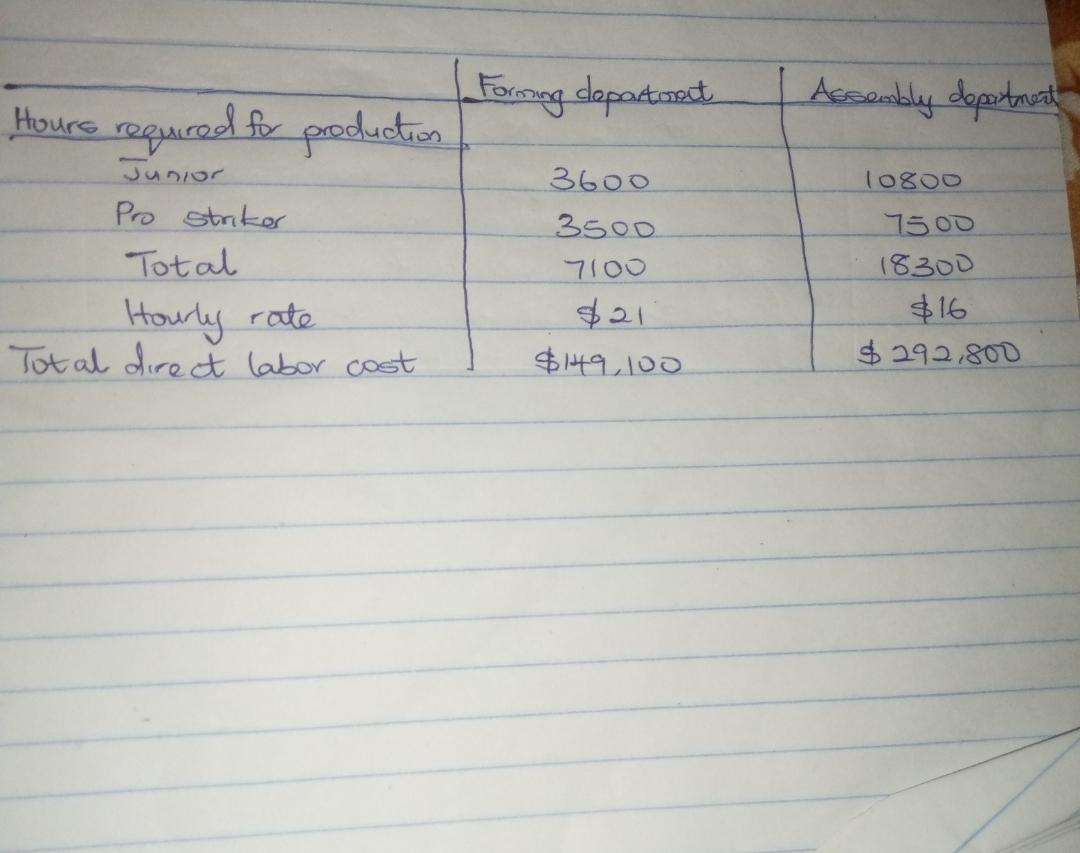 Forming department Assembly department
Hours required for production
Junior 3600 10800
Pro striker 3500 7500
Total 7100 18300
Hourly rate $21 $16
Total direct labor cost $149,100 $292,800